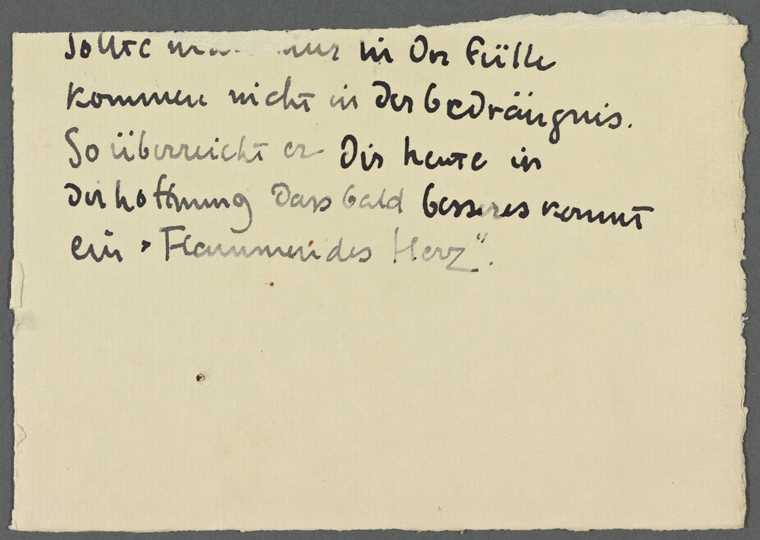 sollte man nur in der Fülle
kommen nicht in der bedrängnis.
So überreicht er Dir heute in
der hoffnung dass bald besseres kommt
ein "Flammendes Herz".